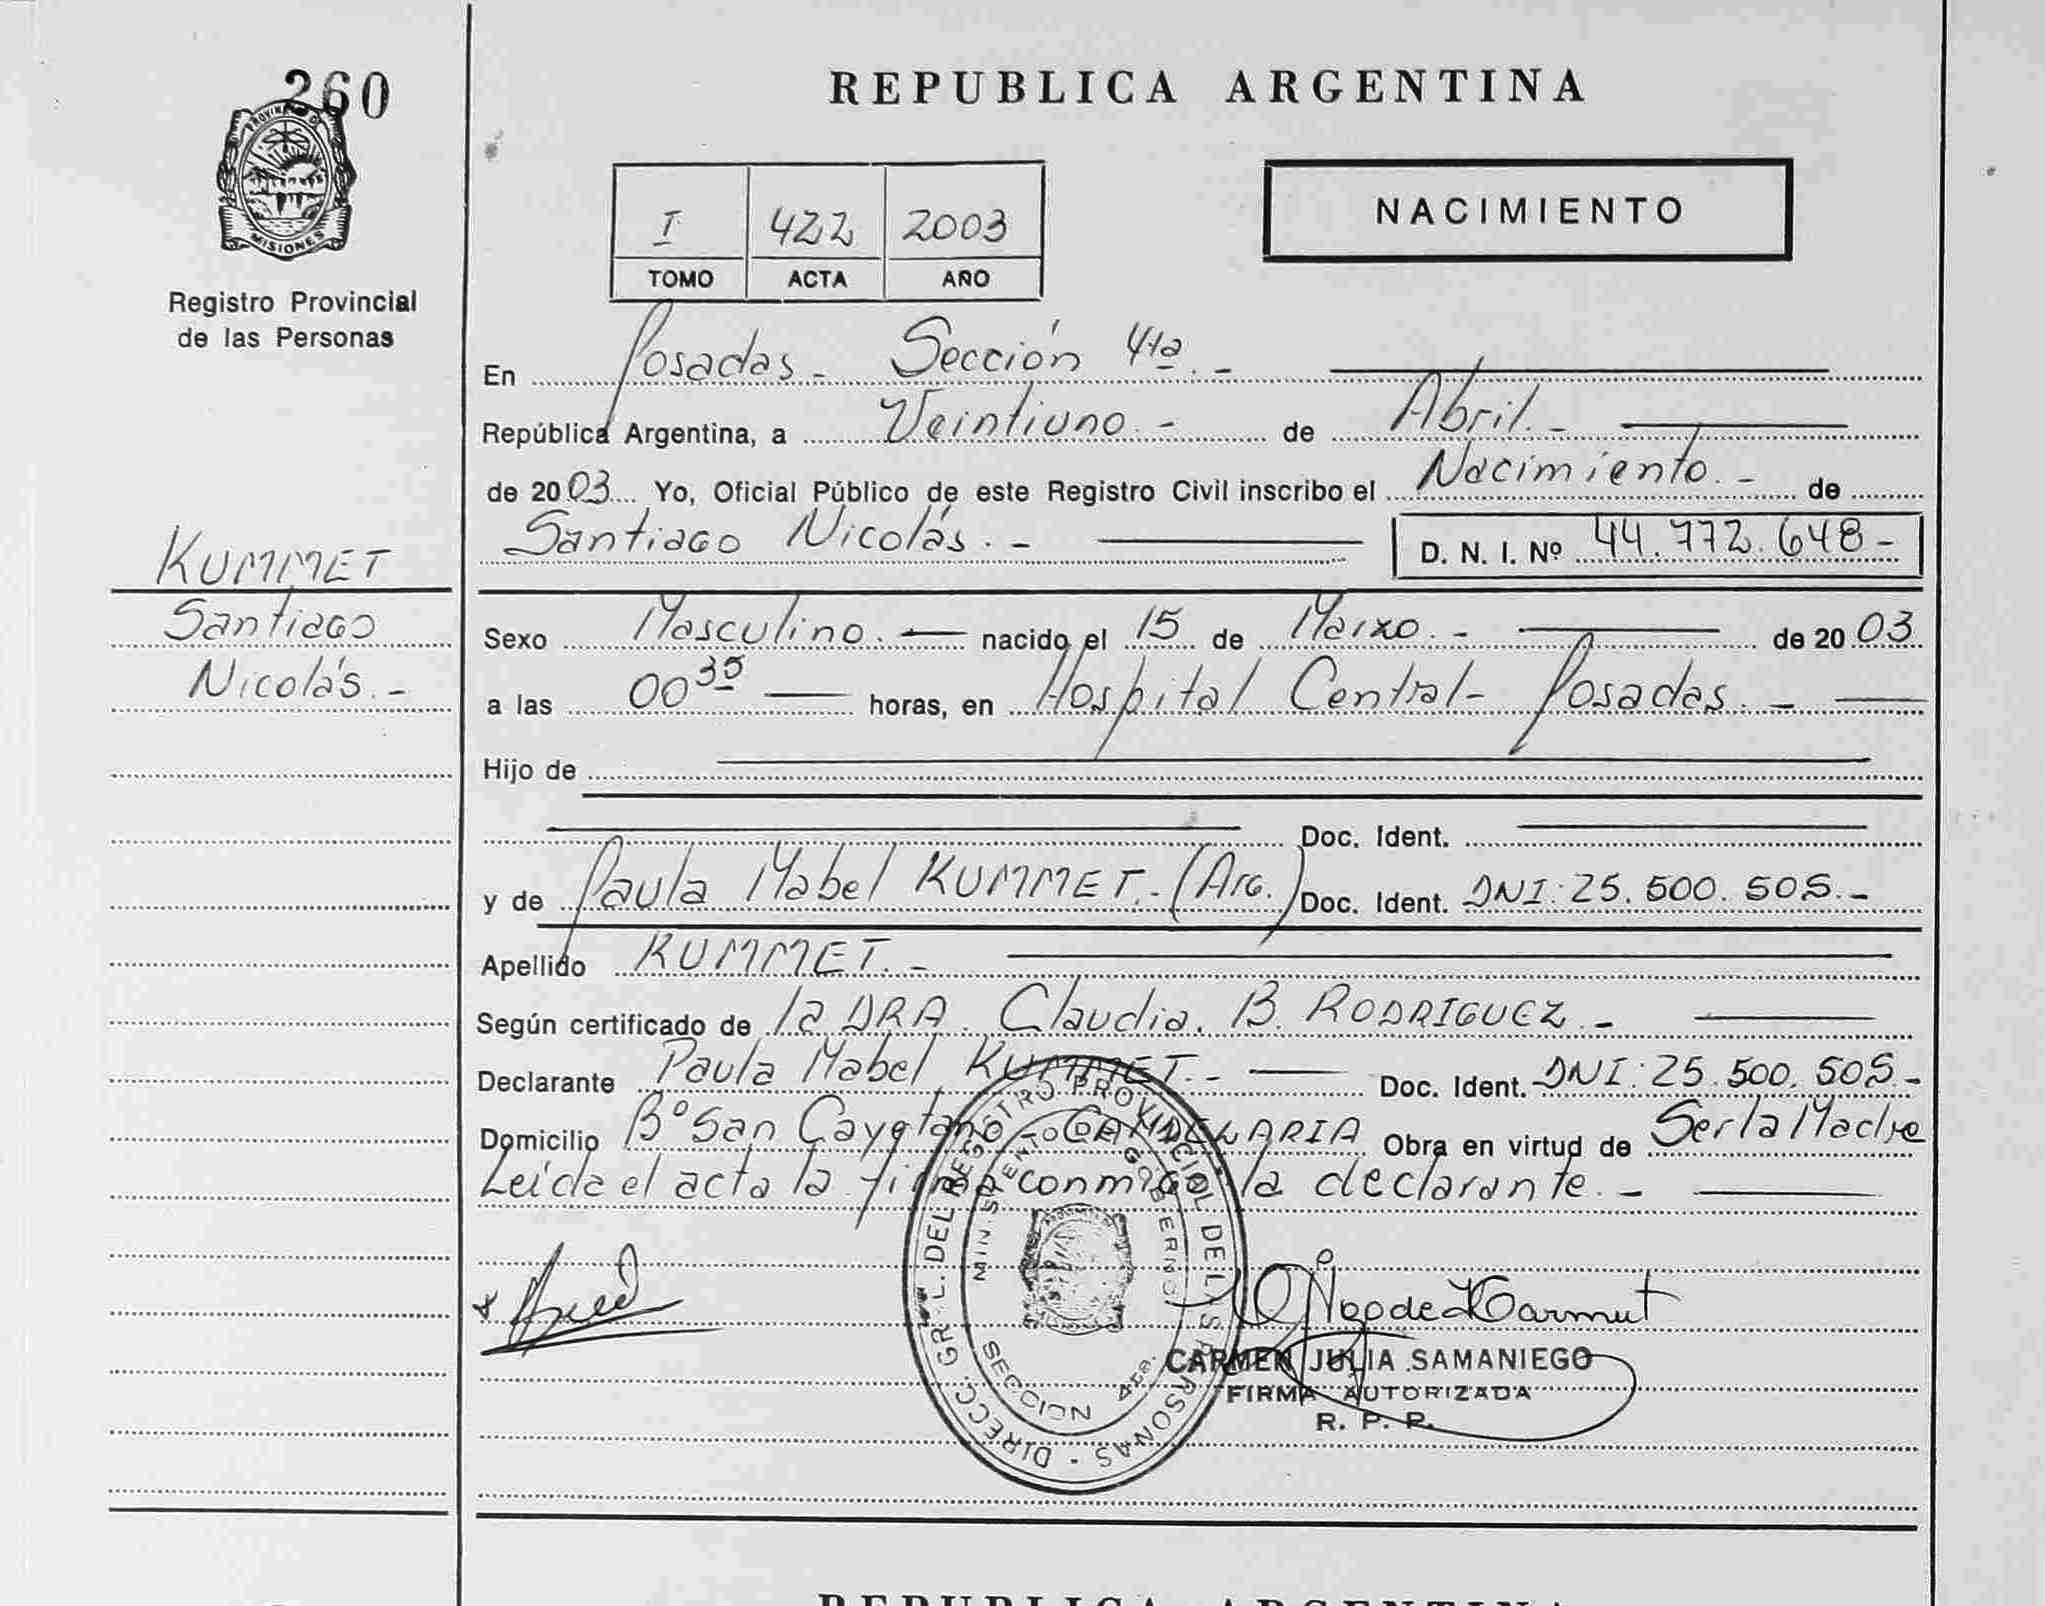 260
PROVINCIA DE
MISIONES
Registro Provincial
de las Personas
KUMMET
Santiago
Nicolás.-
REPUBLICA ARGENTINA
I 422 2003
TOMO ACTA AÑO
NACIMIENTO
En Posadas - Sección 4ta.-
República Argentina, a Veintiuno.- de Abril.-
de 2003 Yo, Oficial Público de este Registro Civil inscribo el Nacimiento.- de
Santiago Nicolás.- D. N. I. Nº 44.772.648-
Sexo Masculino. nacido el 15 de Marzo.- de 2003
a las 00 35 horas, en Hospital Central- Posadas.-
Hijo de
Doc. Ident.
y de Paula Mabel KUMMET.- (Arg.) Doc. Ident. DNI: 25.500.505.-
Apellido KUMMET.-
Según certificado de la DRA. Claudia. B. RODRIGUEZ.-
Declarante Paula Mabel KUMMET.- Doc. Ident. DNI: 25.500.505.-
Domicilio Bº San Cayetano - CANDELARIA Obra en virtud de Ser la Madre
Leida el acta la firma conmigo la declarante.-
DIRECC. GRL. DEL REGISTRO PROVINCIAL DE LAS PERSONAS -
MINISTERIO DE GOBIERNO
SECCION 4ta.
CARMEN JULIA SAMANIEGO
FIRMA AUTORIZADA
R. P. P.
REPUBLICA ARGENTINA